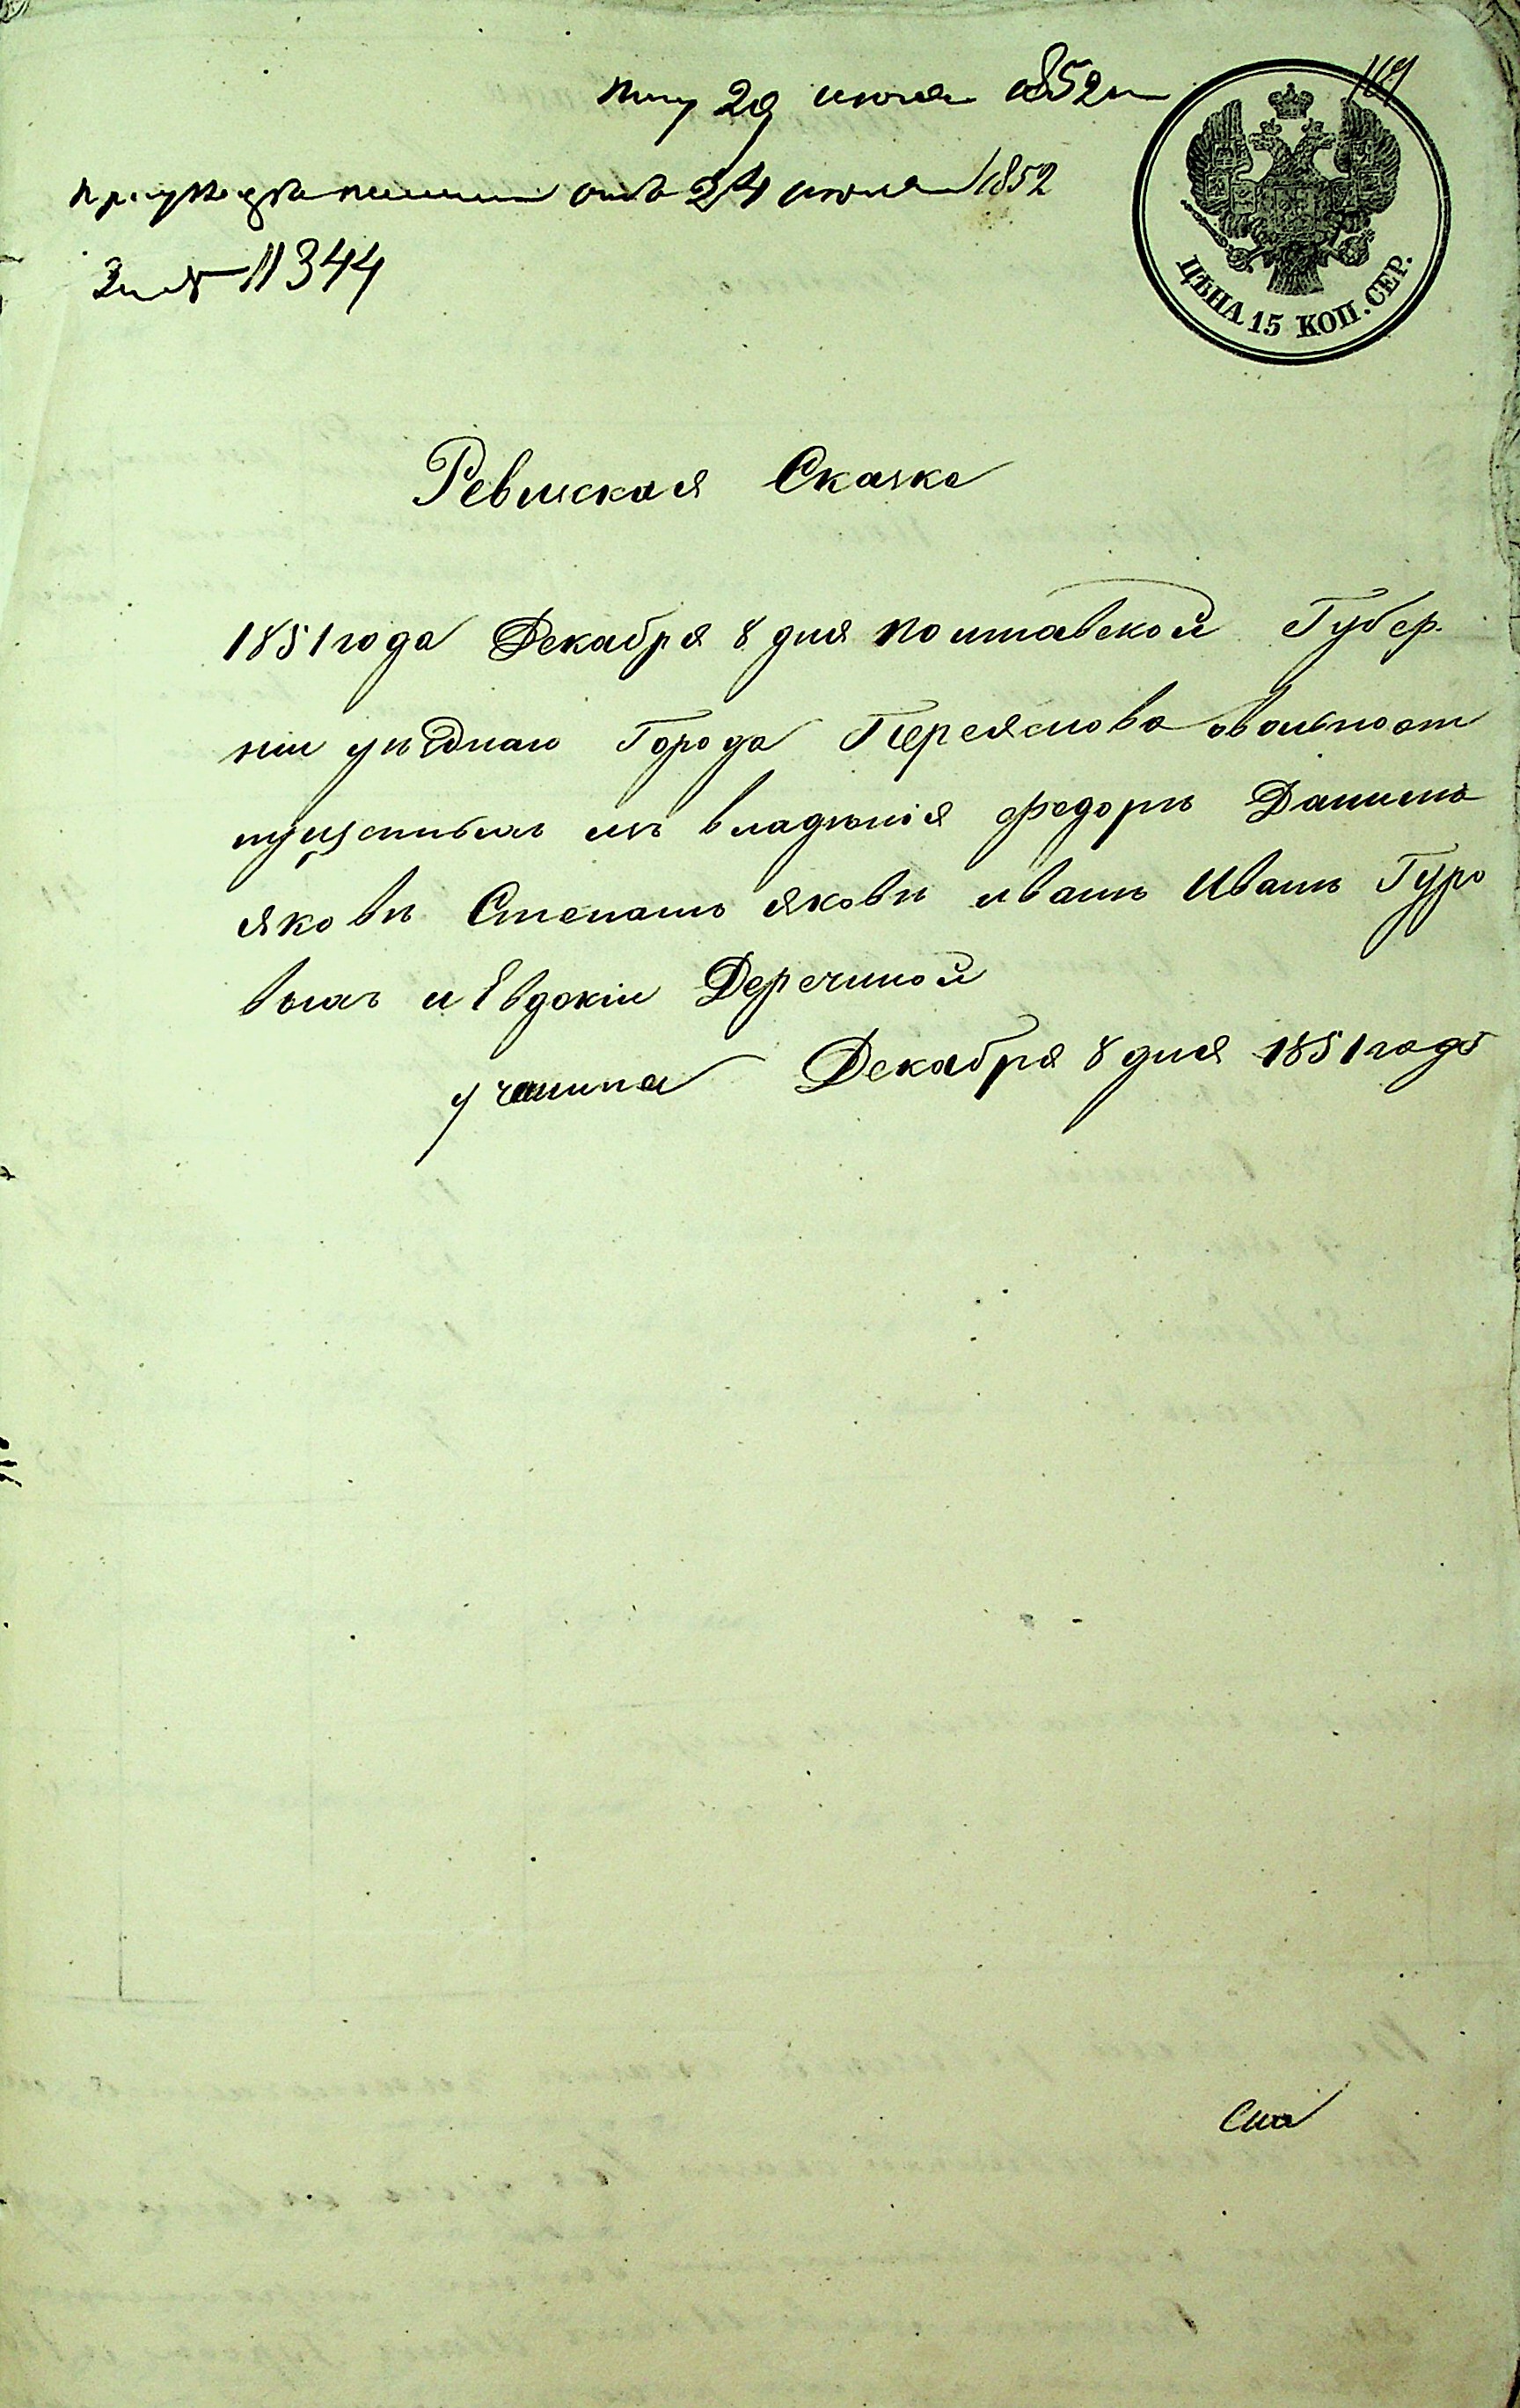 пол 29 июля 1852 г
169
при отношении отъ 24 июля 1852
За № 11344
ЦѢНА 15 КОП. СЕР.
Ревизская Сказка
1851 года Декабря 8 дня Полтавской Губер
ніи уѣзднаго Города Переяслова о вольноот
пущенныхъ изъ владѣнія Федоръ Данило
Яковъ Степанъ Яковъ Иванъ Иванъ Гуро
выхъ и Евдокіи Деречиной
учинена Декабря 8 дня 1851 года